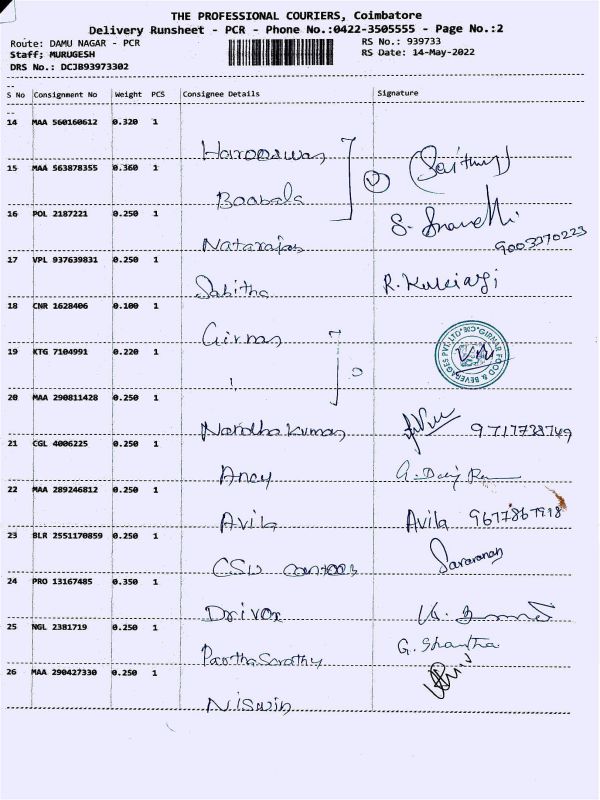 THE PROFESSIONAL COURIERS, Coimbatore
Delivery Runsheet - PCR - Phone No.:0422-3505555 - Page No.:2
Route: DAMU NAGAR - PCR
RS No.: 939733
Staff: MURUGESH
RS Date: 14-May-2022
DRS No.: DCJB93973302
S No Consignment No Weight PCS Consignee Details Signature
14 MAA 560160612 0.320 1
15 MAA 563878355 0.360 1
Boobala
16 POL 2187221 0.250 1
Natarajan
9003370223
17 VPL 937639831 0.250 1
Sabitha
18 CNR 1628406 0.100 1
Girnar
19 KTG 7104991 0.220 1
GIRNAR FOOD & BEVERAGES PVT. LTD.
20 MAA 290811428 0.250 1
Narotha Kumar 9717738749
21 CGL 4006225 0.250 1
Ancy
22 MAA 289246812 0.250 1
Avila Avila 9677867918
23 BLR 2551170859 0.250 1
Saravanan
24 PRO 13167485 0.350 1
Driver
25 NGL 2381719 0.250 1
Partha Sarathy G. Shantha
26 MAA 290427330 0.250 1
Niswin